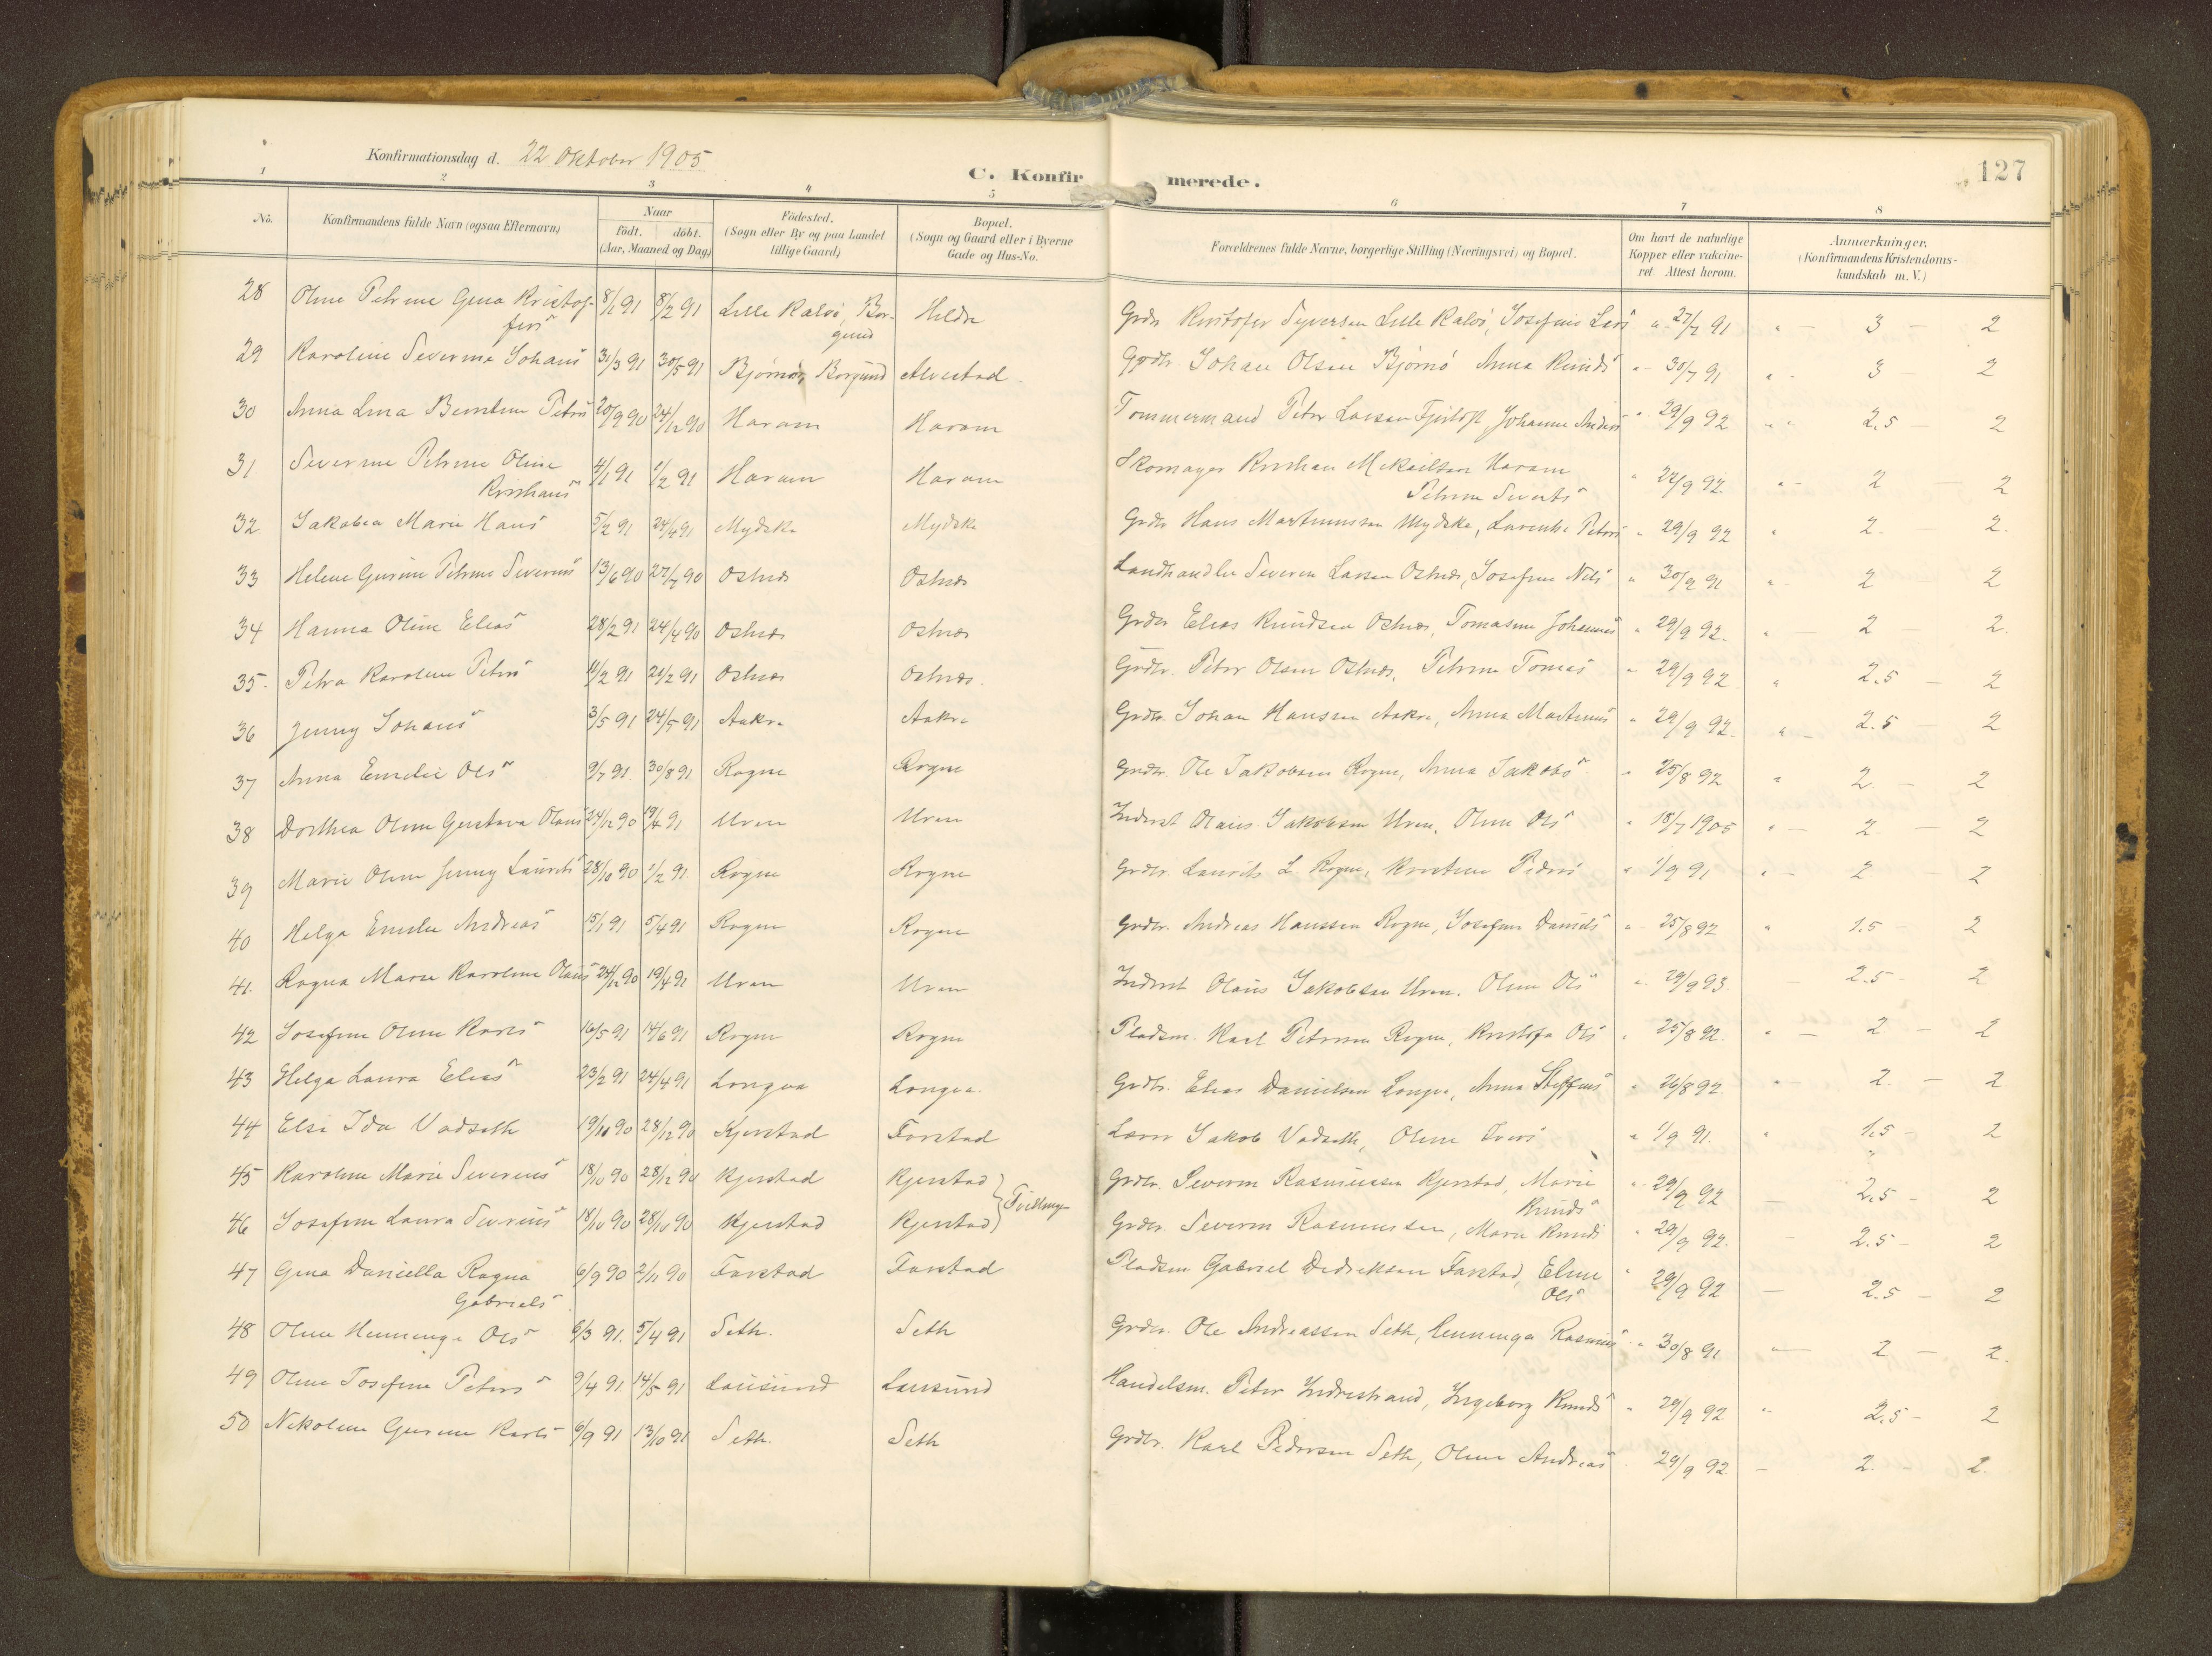 127
Konfirmationsdag d. 22 Oktober 1905
C. Konfirmerede.
1 2 3 4 5 6 7 8
No. Konfirmandens fulde Navn (ogsaa Efternavn) Naar födt. döbt. (Aar, Maaned og Dag) Födested. (Sogn eller By og paa Landet tillige Gaard) Bopæl. (Sogn og Gaard eller i Byerne Gade og Hus-No. Forældrenes fulde Navne, borgerlige Stilling (Næringsvei) og Bopæl. Om havt de naturlige Kopper eller vakcineret. Attest herom. Anmærkninger. (Konfirmandens Kristendomskundskab m. V.)
28 Oline Petrine Gina Kristof- 8/1 91 8/2 91 Lille Kalvö, Bor- Hildre Grdr Kristofer Syversen Lille Kalvö, Josefine Lars " 27/7 91 " - 3 - 2
fers gund
29 Karoline Severine Johans 31/3 91 30/5 91 Bjørnö, Borgund Alvestad Grdr. Johan Olsen Bjørnö Anna Knuds " 30/7 91 " - 3 - 2
30 Anna Lina Berntine Peters 20/9 90 24/12 90 Haram Haram Tømmermand Peter Larsen Fjørtoft, Johanne Anders " 29/9 92 " " 2.5 - 2
31 Severine Petrine Oline 4/1 91 1/2 91 Haram Haram Skomager Kristian Mikailsen Haram " 22/9 92 " - 2 - 2
Kristians Petrine Siverts
32 Jakobea Marie Hans 5/2 91 24/4 91 Mydske Mydske Grdr Hans Martinussen Mydske, Lavents Peters " 29/9 92 " 2. 2.
33 Helene Gurine Petrine Severins 13/6 90 27/7 90 Ostnes Ostnes Landhandler Severin Larsen Ostnes, Josefine Nils " 30/9 91 " - 2 2
34 Hanna Oline Elias 28/2 91 24/4 90 Ostnes Ostnes Grdr Elias Knudsen Ostnes, Tomasine Johannes " 29/9 92. " - 2 2.
35. Petra Karoline Peters 4/2 91 21/2 91 Ostnes Ostnes. Grdbr. Peter Olsen Ostnes, Petrine Tomas " 29/9 92 " 2.5 - 2
36 Jenny Johans 3/5 91 24/5 91 Aakre Aakre Grdbr. Johan Hanssen Aakre, Anna Martinus " 29/9 92. " - 2.5 2
37 Anna Emelie Ols 9/7 91. 30/8 91 Rogne Rogne Grdbr. Ole Jakobsen Rogne, Anna Jakobs " 25/8 92 " 2 - 2
38 Dorthea Oline Gustava Olaus 24/12 90 19/4 91 Uren Uren Inderst Olaus Jakobsen Uren, Oline Ols " 18/7 1905 " - 2 - 2
39 Marie Oline Jenny Laurits 28/10 90 1/2 91. Rogne Rogne Grdbr. Laurits L. Rogne, Kristine Peders " 1/9 91 " - 2 - 2
40 Helga Emelie Andreas 15/1 91 5/4 91 Rogne Rogne Grdbr. Andreas Hanssen Rogne, Josefine Daniels " 25/8 92 " 1.5 - 2
41. Ragna Marie Karoline Olaus 24/12 90 19/4 91 Uren Uren Inderst Olaus Jakobsen Uren. Oline Ols " 29/9 93. - 2.5 - 2
42 Josefine Oline Karls 16/5 91 14/6 91 Rogne Rogne Pladsm. Karl Petersen Rogne, Kristofa Ols " 25/8 92. " - 2 - 2
43 Helga Laura Elias 23/2 91 24/4 91 Longva Longva. Grdbr. Elias Danielsen Longva, Anna Steffens " 26/8 92. " - 2. - 2
44 Elsi Ida Vadseth 19/10 90 28/12 90 Kjerstad Farstad Lærer Jakob Vadseth, Oline Ivers " 1/9 91. " 1.5 - 2
45 Karoline Marie Severins 18/10 90 28/12 90 Kjerstad Kjerstad } Tvilling Grdbr. Severin Rasmussen Kjerstad, Marie " 29/9 92 - 2.5 - 2
Knuds
46 Josefine Laura Severins 18/10 90 28/10 90 Kjerstad Kjerstad Grdbr. Severin Rasmussen, Marie Knuds " 29/9 92. - 2.5 - 2
47 Gina Daniella Ragna 6/9 90 2/11 90 Farstad Farstad Pladsm Gabriel Didriksen Farstad, Eline " 29/9 92 - 2.5 - 2
Gabriels Ols
48 Oline Henninge Ols 6/3 91. 5/4 91 Seth. Seth Grdbr. Ole Andreassen Seth, Henninga Rasmus " 30/8 91 - 2 - 2.
49 Oline Josefine Peters 9/4 91 14/5 91 Lausund Lausund Handelsm. Peter Indrestrand, Ingeborg Knuds " 29/9 92 " 2.5 - 2
50 Nikoline Gurine Karls 6/9 91 13/10 91 Seth. Seth Grdbr. Karl Pedersen Seth, Oline Andreas 29/9 92 - 2. - 2.